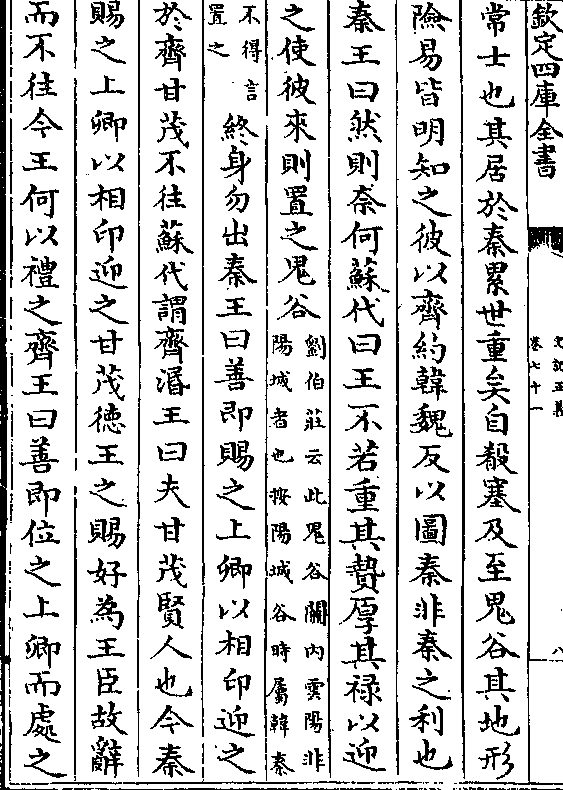 欽定四庫全書
史記正義
卷七十一
八
常士也其居於秦累世重矣自殽塞及至鬼谷其地形
險易皆明知之彼以齊約韓魏反以圖秦非秦之利也
秦王曰然則奈何蘇代曰王不若重其贄厚其祿以迎
之使彼來則置之鬼谷
劉伯莊云此鬼谷關內雲陽非
陽城者也按陽城谷時屬韓秦
不得言
置之
終身勿出秦王曰善即賜之上卿以相印迎之
於齊甘茂不往蘇代謂齊湣王曰夫甘茂賢人也今秦
賜之上卿以相印迎之甘茂徳王之賜好為王臣故辭
而不往今王何以禮之齊王曰善即位之上卿而處之